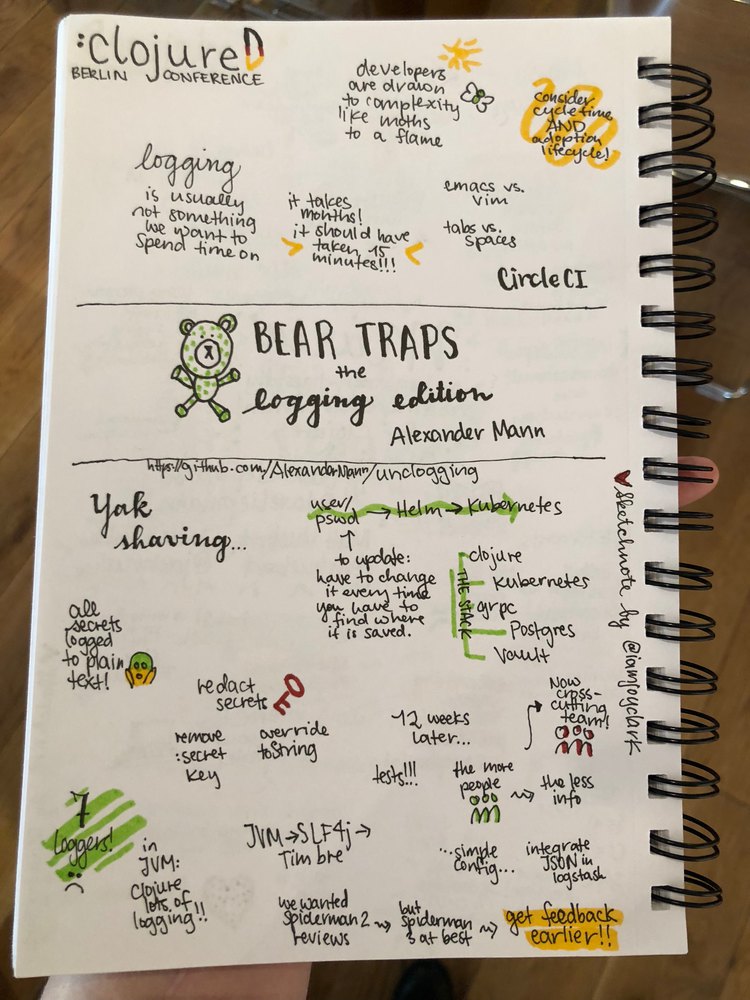 :clojureD
BERLIN CONFERENCE
developers
are drawn
to complexity
like moths
to a flame
consider
cycle time
AND
adoption
lifecycle!
logging
is usually
not something
we want to
spend time on
it takes
months!
it should have
taken 15
minutes!!!
emacs vs.
vim
tabs vs.
spaces
CircleCI
BEAR TRAPS
the
logging edition
Alexander Mann
https://github.com/AlexanderMann/unclogging
Yak
shaving...
user/
pswd → Helm → Kubernetes
to update:
have to change
it every time
you have to
find where
it is saved.
THE STACK
clojure
Kubernetes
grpc
Postgres
Vault
♥ Sketchnote by @iamjoyclark
all
secrets
logged
to plain
text!
redact
secrets
remove
:secret
key
override
toString
12 weeks
later...
Now
cross-
cutting
team!
tests!!!
the more
people
the less
info
7
loggers!
in
JVM:
clojure
lots of
logging!!
JVM → SLF4j →
Timbre
...simple
config...
integrate
JSON in
logstash
we wanted
spiderman 2
reviews
but
spiderman
3 at best
get feedback
earlier!!